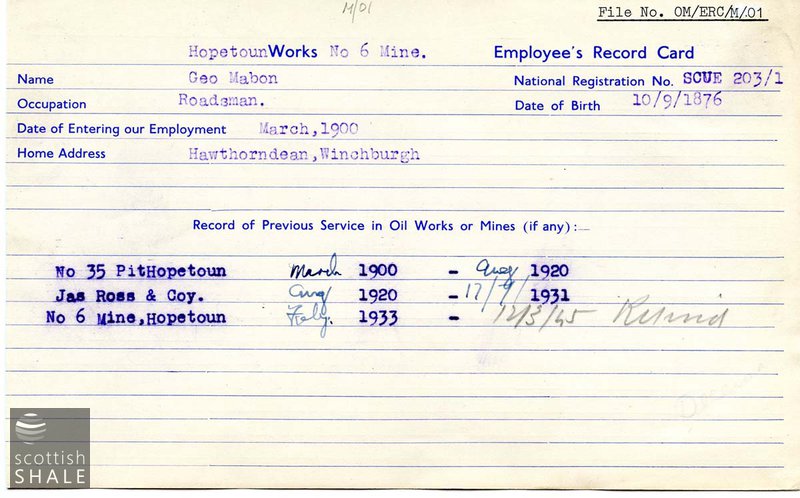 M/01
File No. OM/ERC/M/01
Hopetoun Works No 6 Mine. Employee's Record Card
Name Geo Mabon National Registration No. SCUE 203/1
Occupation Roadsman. Date of Birth 10/9/1876
Date of Entering our Employment March, 1900
Home Address Hawthorndean, Winchburgh
Record of Previous Service in Oil Works or Mines (if any):—
No 35 Pit Hopetoun March 1900 - Aug 1920
Jas Ross & Coy. Aug 1920 - 17/9/ 1931
No 6 Mine, Hopetoun Feby. 1933 - 12/3/45 Retired
scottish
SHALE